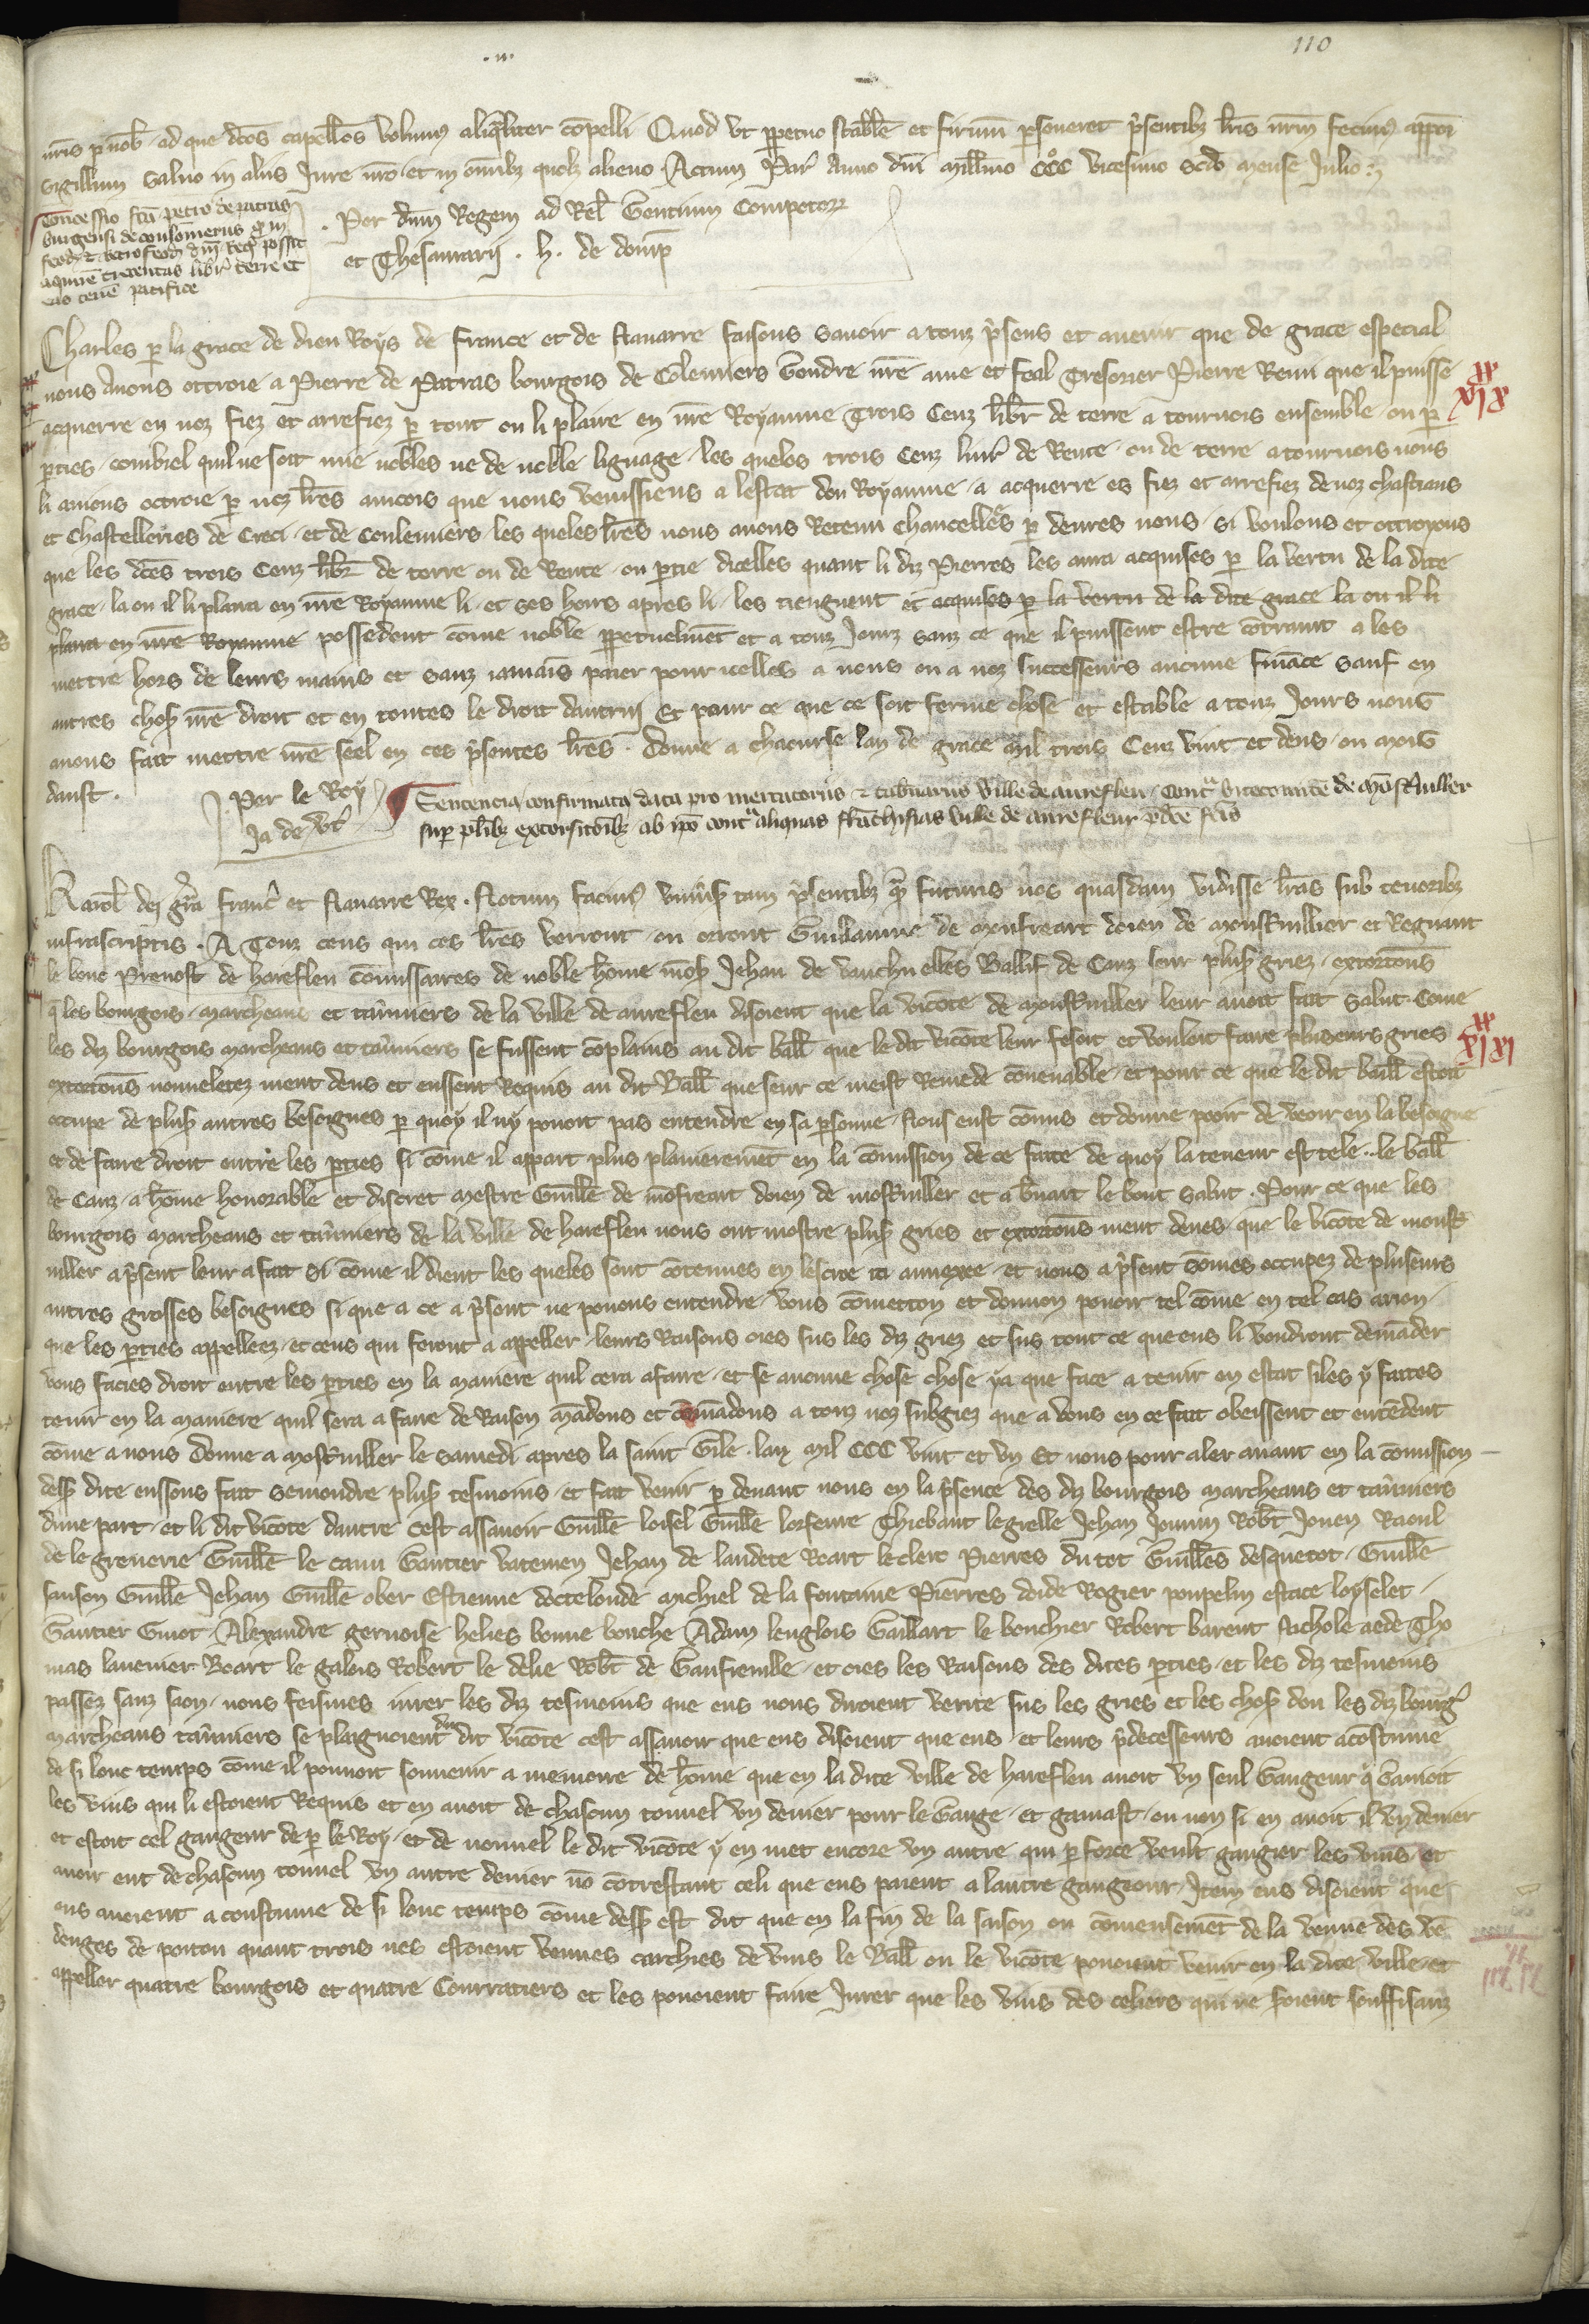 110
nris p nob ad que dcos capellos volum aliqliter copelli Quod ut ppetuo stabile et firmu perseueret psentibz lris nrm fecim apponi
sigillum saluo in aliis Jure nro et in omibz quolz alieno Actum Par Anno dni Millimo CCC vicesimo scdo mense Julio
Concessio fca petro de patras
burgensi de coulomeriis q in
feod et retrofeod dni Reg possit
aquirere trecentas libr terre et
eas tenere pacifice
Per dnm Regem ad Rel Gentium Compotor
et Thesaurarij . h. de domp
Charles p la grace de dieu Roys de france et de Nauarre faisons sauoir a touz psens et auenir que de grace especial
nous Auons ottroie a Pierre de Patras bourgois de Colemiers Gendre nre ame et feal Tresorier Pierre Remi que il puisse
XIX
acquerre en noz fiez et arrefiez p tout ou li plaira en nre Royaume Trois Cenz libr de terre a tournois ensemble ou p
pties combiel quil ne soit mie nobles ne de noble lignage les queles trois Cenz liur de Rente ou de terre a tournois nous
li auions ottroie p noz lres aincois que nous venissiens a lestat dou Royaume a acquerre es fiez et arrefiez de noz chastiaus
et Chastelleries de Creci et de Coulemiers les queles lres nous auons Retenu chancellees p deuers nous si voulons et ottroyons
que les dces trois Cenz libr de terre ou de Rente ou ptie dicelles quant li diz Pierres les aura acquises p la vertu de la dite
grace la ou il li plaira en nre Royaume li et ses hoirs apres li les tiengnent et acquises p la vertu de la dite grace la ou il li
plaira en nre Royaume possedent come noble ppetuelmet et a touz Jourz sanz ce que il puissent estre cotraint a les
mettre hors de leurs mains et sanz iamais paier pour icelles a nous ou a noz successeurs aucune finace sauf en
autres chos nre droit et en toutes le droit dautrui Et pour ce que ce soit ferme chose et estable a touz Jours nous
auons fait mettre nre seel en ces psentes lres . Donne a Chaourse lan de grace Mil trois Cenz vint et deus ou mois
daust .
Par le Roy
Ja de vt
Sentencia confirmata data pro mercatoriis et tabnariis ville de aurefleu cont vicecomite de Mostiuiller
sup plibz extorsioibz ab ipo cont aliquas franchisias ville de aurefleur pdce fcis
Karol dei gra Franc et Nauarre Rex . Notum facim vniuis tam psentibz q futuris nos quasdam vidisse lras sub tenoribz
infrascriptis . A Touz ceus qui ces lres verront ou orront Guillaume de Monfreart doien de Monstiuillier et Regnaut
le bouc Preuost de hareflieu comissaires de noble home mos Jehan de vauchuelles Baillif de Caux seur plus griez extorcons
q les bourgois marcheans et tauniers de la ville de aurefleu disoient que la viconte de Monstiuiller leur auoit fait Salut Come
les diz bourgois marcheans et tauniers se fussent coplains au dit ball que le dit viconte leur fesoit et vouloit faire pluseurs gries
XIXI
extortons nouueletez ment deus et eussent Requis au dit Ball que seur ce meist Remede couenable et pour ce que le dit baill estoit
occupe de plus autres besoignes p quoy il ny pouoit pas entendre en sa psonne Nous eust comis et donne pooir de veoir en la besoigne
et de faire droit entre les pties si come il appart plus plainieremet en la comission de ce faite de quoy la teneur est tele . le ball
de Caux a home honorable et discret Mestre Guille de mofreart doien de mostiuiller et a Renart le bouc Salut . Pour ce que les
bourgois marcheans et tauniers de la ville de harefleu nous ont mostre plus gries et extortons ment deues que le viconte de monst
uiller a psent leur a fait si come il dient les queles sont cotenues en lescroe ci annexee et nous a psent somes occupez de pluseurs
autres grosses besoignes si que a ce a psent ne pouons entendre vous cometton et donnon pouoir tel come en tel cas auon
que les pties appelleez et ceus qui seront a appeller leurs Raisons oies sus les diz griez et sus tout ce que eus li voudront demader
vous facies droit entre les pties en la maniere quil cera a faire et se aucune chose chose y a que face a tenir en estat si les y faites
tenir en la maniere quil sera a faire de Raison madons et comadons a touz noz subgiez que a vous en ce fait obeissent et entedent
come a nous Donne a Mostiuiller le samedi apres la saint Gile lan Mil CCC vint et vn Et nous pour aler auant en la comission
dess dite eussons fait semondre plus tesmoins et fait venir p deuant nous en la psence des diz bourgois marcheans et tauniers
dune part et li dit viconte dautre cest assauoir Guille loisel Guille lorfeure Thiebaut le grelle Jehan Jouuin Robt Jouen Raoul
de le greuerie Guille le canu Gautier vatemen Jehan de landete Roart le clerc Pierres du tot Guilles desquetot Guille
sanson Guille Jehan Guille ober Estienne doctelonde Michiel de la fontaine Pierres doide Rogier poupelin estace loyselet
Gautier Guiot Alexandre gernoise helies bonne bouche Adam lenglois Gaillart le bouchier Robert barent Nichole aede Tho
mas lauenier Roart le galeis Robert le delie Robt de Gaufreuille et oies les Raisons des dites pties et les diz tesmoins
passez sanz saon nous feismes iurer les diz tesmoins que eus nous diroient verite sus les gries et les chos dou les diz bourg
marcheans tauniers se plaignoient du dit viconte cest assauoir que eus disoient que eus et leurs pdecesseurs auoient acostume
de si lonc temps come il pouuoit souuenir a memoire de home que en la dite ville de harefleu auoit vn seul Gaugeur q Gaujoit
les vins qui li estoient Requis et en auoit de chascun tonnel vn denier pour le Gauge et gaujast ou non si en auoit il vn denier
et estoit cel gaugeur de p le Roy et de nouuel le dit viconte y en met encore vn autre qui p force veult gaugier les vins et
auoir ent de chascun tonnel vn autre denier no cotrestant celi que eus paient a lautre gaugeour Item eus disoient que
eus auoient a coustume de si lonc temps come dess est dit que en la fin de la saison ou comensemet de la venue des ve
denges de poitou quant trois nes estoient venues carchies de vins le Ball ou le viconte pouoient venir en la dite ville et
appeller quatre bourgois et quatre Courratiers et les pouoient faire Jurer que les vins des celiers qui ne soient souffisanz